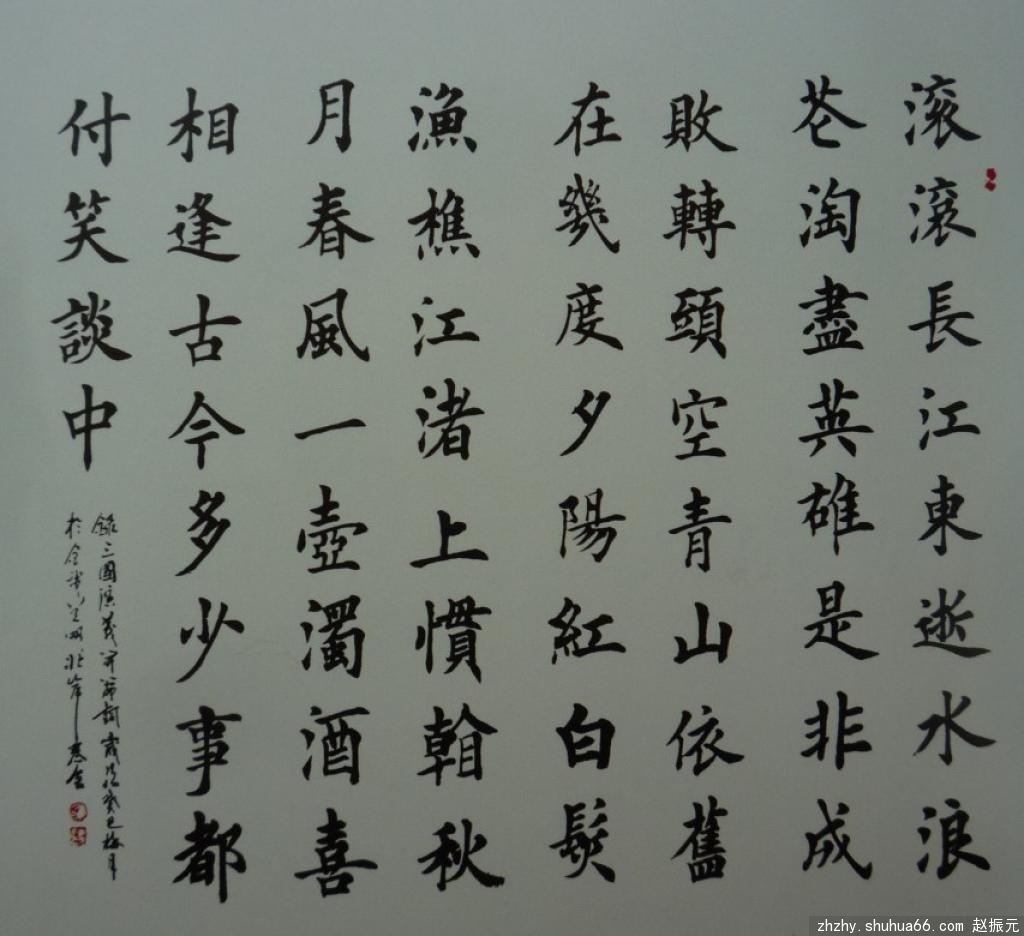 滚滾長江東逝水浪
花淘盡英雄是非成
敗轉頭空青山依舊
在幾度夕陽紅白髮
漁樵江渚上慣看秋
月春風一壺濁酒喜
相逢古今多少事都
付笑談中
錄三國演義開篇詞歲次癸巳梅月
zhzhy.shuhua66.com 赵振元